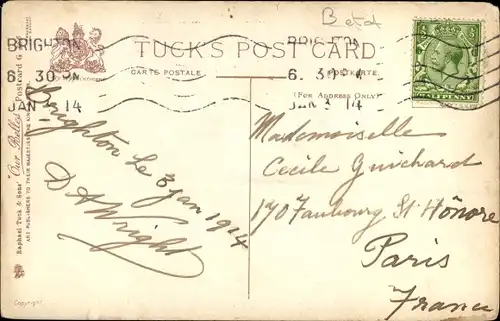 Betd
BRIGHTON
6. 30 PM
JAN 14
TUCK'S POST CARD
CARTE POSTALE
POSTKARTE
(FOR ADDRESS ONLY)
BRIGHTON
6. 30
JAN 3 14
HALFPENNY
Brighton le 3 Jan 1914
D A Wright
Mademoiselle
Cecile Guichard
170 Faubourg St. Hônore
Paris
France
Raphael Tuck & Sons' "Our Belles" Postcard
ART PUBLISHERS TO THEIR MAJESTIES THE KING
Copyright